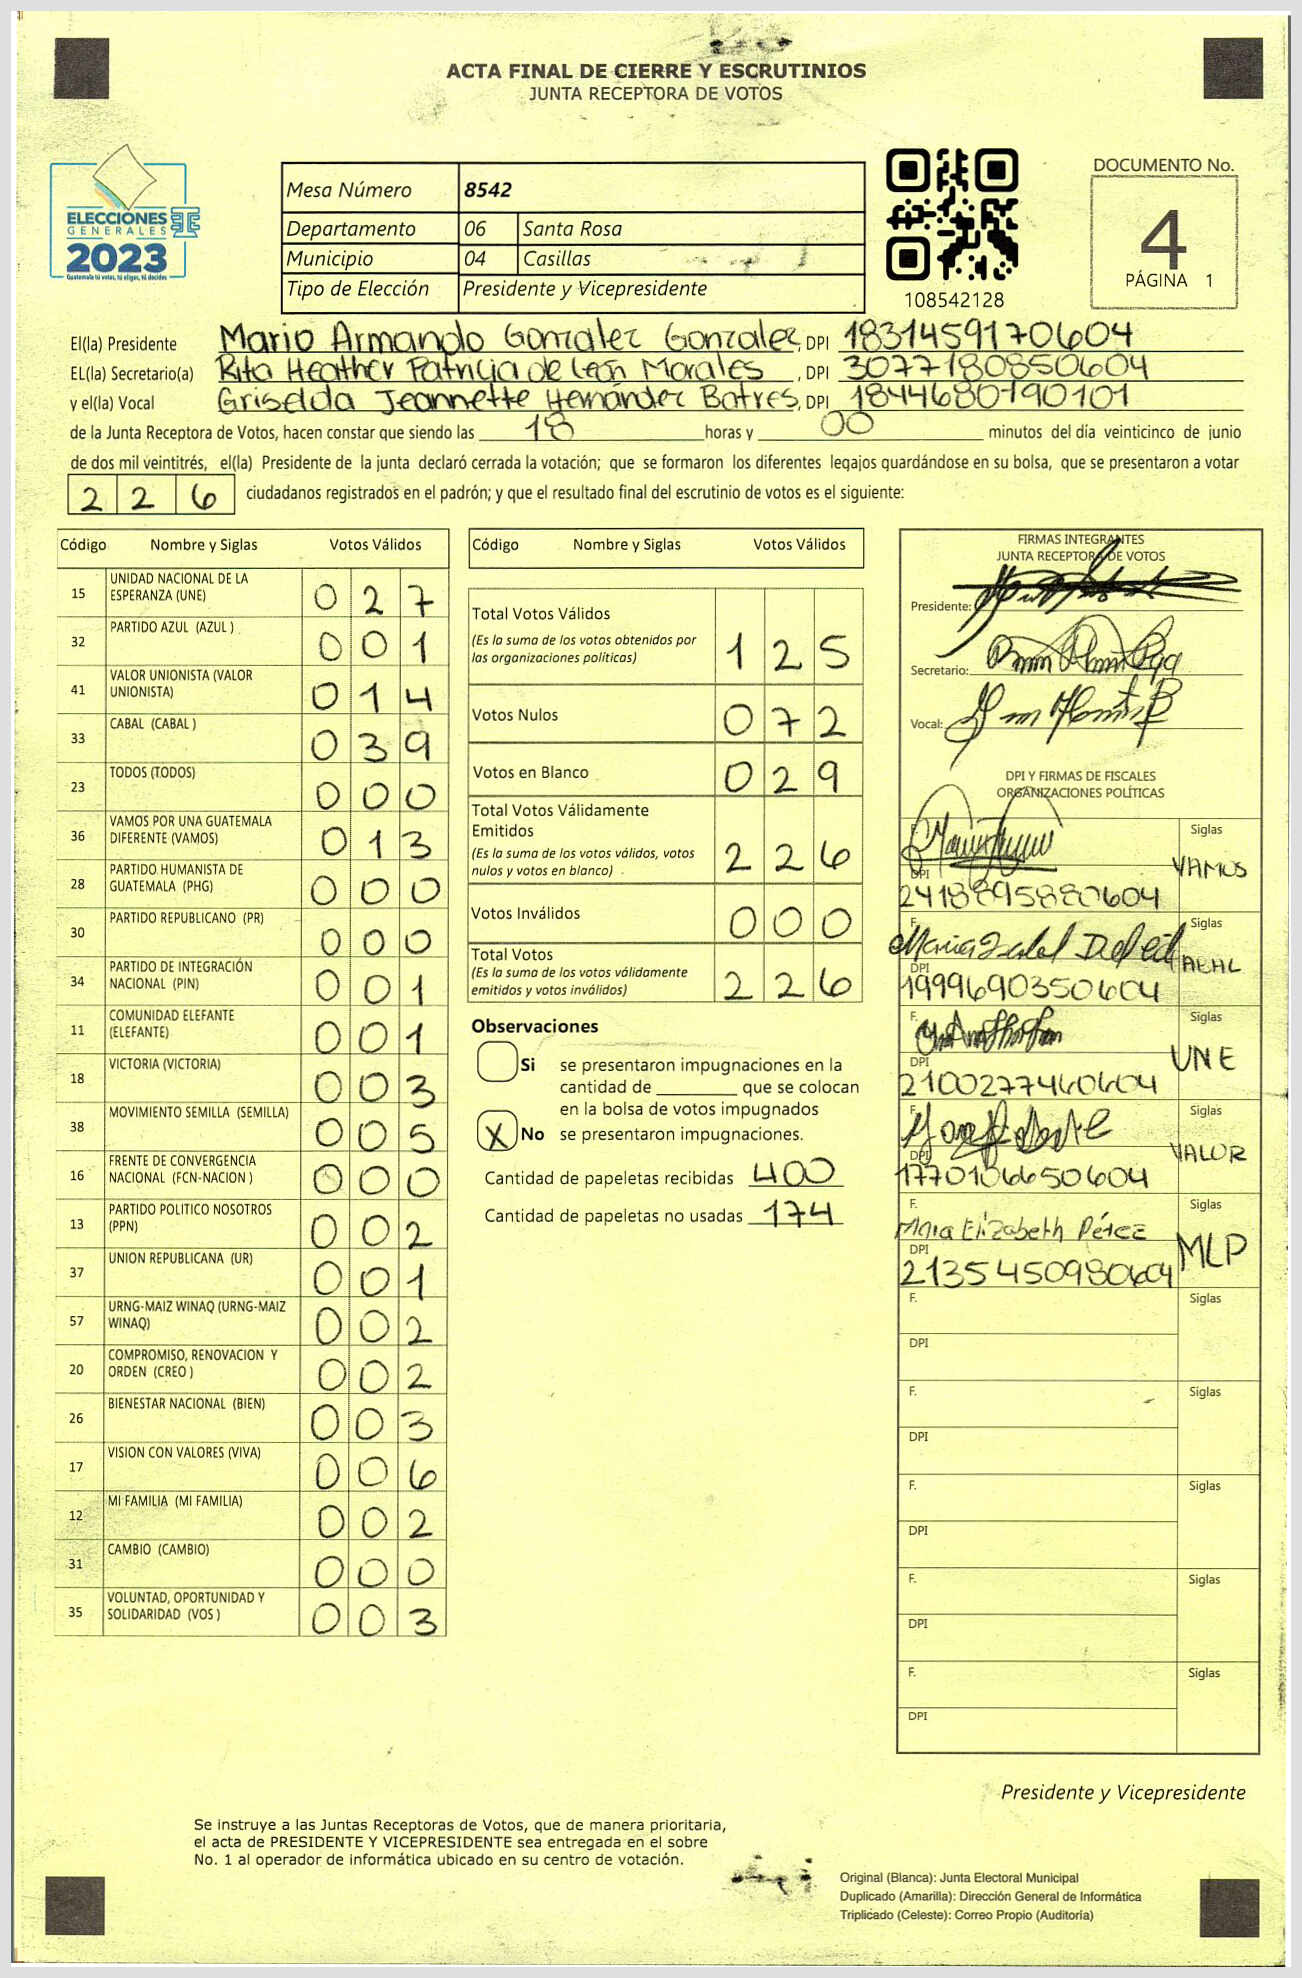 ACTA FINAL DE CIERRE Y ESCRUTINIOS
JUNTA RECEPTORA DE VOTOS
ELECCIONES
GENERALES
2023
Guatemala tú votas, tú eliges, tú decides
Mesa Número 8542
Departamento 06 Santa Rosa
Municipio 04 Casillas
Tipo de Elección Presidente y Vicepresidente
108542128
DOCUMENTO No.
4
PÁGINA 1
El(la) Presidente Mario Armando Gonzalez Gonzalez, DPI 1831459170604
EL(la) Secretario(a) Rita Heather Patricia de León Morales, DPI 3077180850604
y el(la) Vocal Griselda Jeannette Hernández Batres, DPI 1844680190101
de la Junta Receptora de Votos, hacen constar que siendo las 18 horas y 00 minutos del día veinticinco de junio
de dos mil veintitrés, el(la) Presidente de la junta declaró cerrada la votación; que se formaron los diferentes legajos guardándose en su bolsa, que se presentaron a votar
226 ciudadanos registrados en el padrón; y que el resultado final del escrutinio de votos es el siguiente:
Código Nombre y Siglas Votos Válidos
15 UNIDAD NACIONAL DE LA ESPERANZA (UNE) 027
32 PARTIDO AZUL (AZUL ) 001
41 VALOR UNIONISTA (VALOR UNIONISTA) 014
33 CABAL (CABAL ) 039
23 TODOS (TODOS) 000
36 VAMOS POR UNA GUATEMALA DIFERENTE (VAMOS) 013
28 PARTIDO HUMANISTA DE GUATEMALA (PHG) 000
30 PARTIDO REPUBLICANO (PR) 000
34 PARTIDO DE INTEGRACIÓN NACIONAL (PIN) 001
11 COMUNIDAD ELEFANTE (ELEFANTE) 001
18 VICTORIA (VICTORIA) 003
38 MOVIMIENTO SEMILLA (SEMILLA) 005
16 FRENTE DE CONVERGENCIA NACIONAL (FCN-NACION ) 000
13 PARTIDO POLITICO NOSOTROS (PPN) 002
37 UNION REPUBLICANA (UR) 001
57 URNG-MAIZ WINAQ (URNG-MAIZ WINAQ) 002
20 COMPROMISO, RENOVACION Y ORDEN (CREO ) 002
26 BIENESTAR NACIONAL (BIEN) 003
17 VISION CON VALORES (VIVA) 006
12 MI FAMILIA (MI FAMILIA) 002
31 CAMBIO (CAMBIO) 000
35 VOLUNTAD, OPORTUNIDAD Y SOLIDARIDAD (VOS ) 003
Código Nombre y Siglas Votos Válidos
Total Votos Válidos 125
(Es la suma de los votos obtenidos por
las organizaciones políticas)
Votos Nulos 072
Votos en Blanco 029
Total Votos Válidamente
Emitidos 226
(Es la suma de los votos válidos, votos
nulos y votos en blanco)
Votos Inválidos 000
Total Votos 226
(Es la suma de los votos válidamente
emitidos y votos inválidos)
Observaciones
Si se presentaron impugnaciones en la
cantidad de ________ que se colocan
en la bolsa de votos impugnados
X No se presentaron impugnaciones.
Cantidad de papeletas recibidas 400
Cantidad de papeletas no usadas 174
FIRMAS INTEGRANTES
JUNTA RECEPTORA DE VOTOS
Presidente:
Secretario:
Vocal:
DPI Y FIRMAS DE FISCALES
ORGANIZACIONES POLÍTICAS
F. Siglas VAMOS
DPI 2418895880604
F. Siglas
DPI 1999690350604
F. Siglas UNE
DPI 2100277460604
F. Siglas VALOR
DPI 1770106650604
F. Maria Elizabeth Pérez Siglas MLP
DPI 2135450980604
F. Siglas
DPI
F. Siglas
DPI
F. Siglas
DPI
F. Siglas
DPI
F. Siglas
DPI
Presidente y Vicepresidente
Se instruye a las Juntas Receptoras de Votos, que de manera prioritaria,
el acta de PRESIDENTE Y VICEPRESIDENTE sea entregada en el sobre
No. 1 al operador de informática ubicado en su centro de votación.
Original (Blanca): Junta Electoral Municipal
Duplicado (Amarilla): Dirección General de Informática
Triplicado (Celeste): Correo Propio (Auditoría)